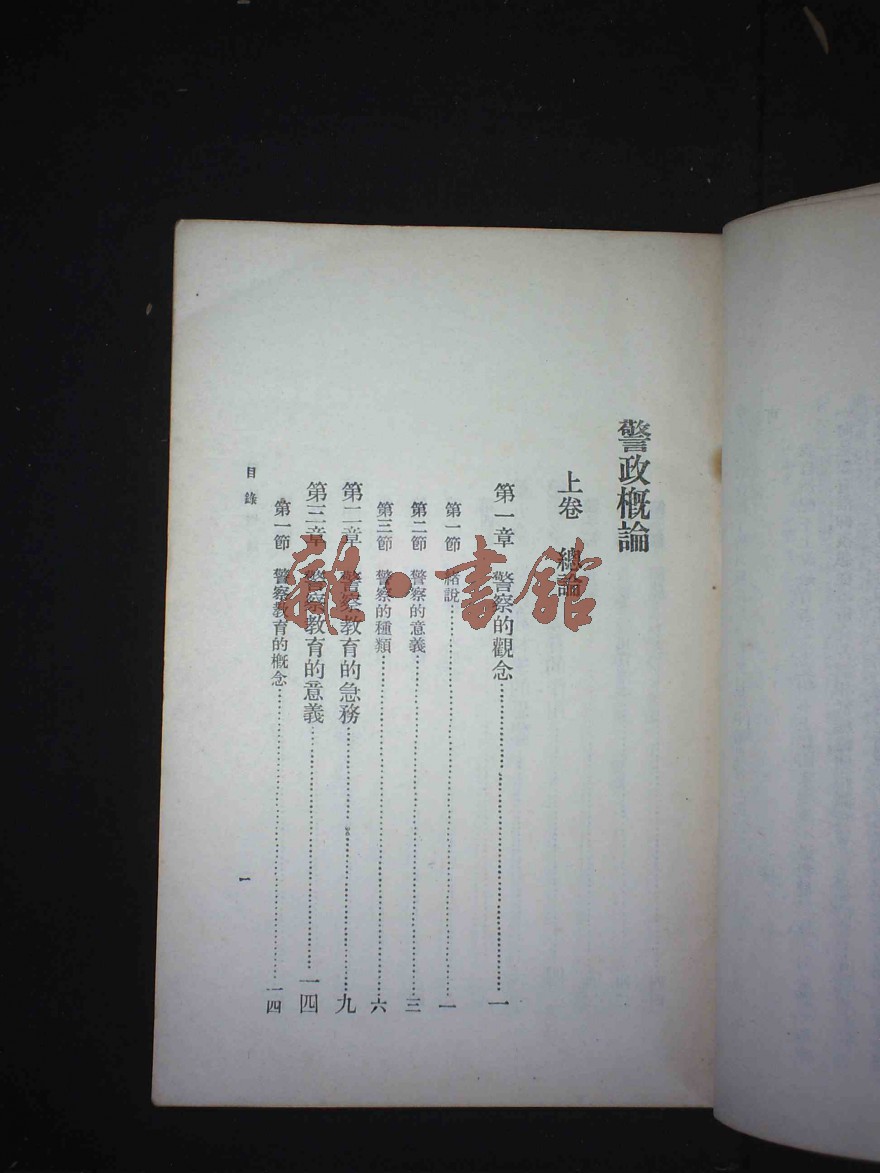 警政概論
上卷　總論
第一章　警察的觀念……一
第一節　緒說……一
第二節　警察的意義……三
第三節　警察的種類……六
第二章　警察教育的急務……九
第三章　警察教育的意義……一四
第一節　警察教育的概念……一四
目錄
一
雜·書館